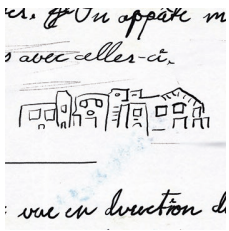 On appâte
avec celles-ci.
vue en direction